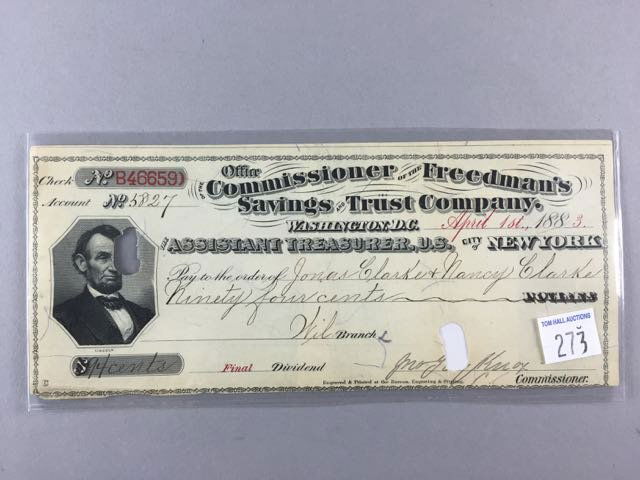 Check No. B46659
Office
OF THE Commissioner OF THE Freedman's
Account No. 5827
Savings AND Trust Company.
WASHINGTON, D.C. April 1st, 1883.
THE ASSISTANT TREASURER, U.S. CITY OF NEW YORK
Pay to the order of Jonas Clarke & Nancy Clarke
Ninety four cents DOLLARS
Wil Branch
LINCOLN
$ 94 cents
Final Dividend
Jno Jay Knox
Engraved & Printed at the Bureau, Engraving & Printing.
Commissioner.
TOM HALL AUCTIONS
273